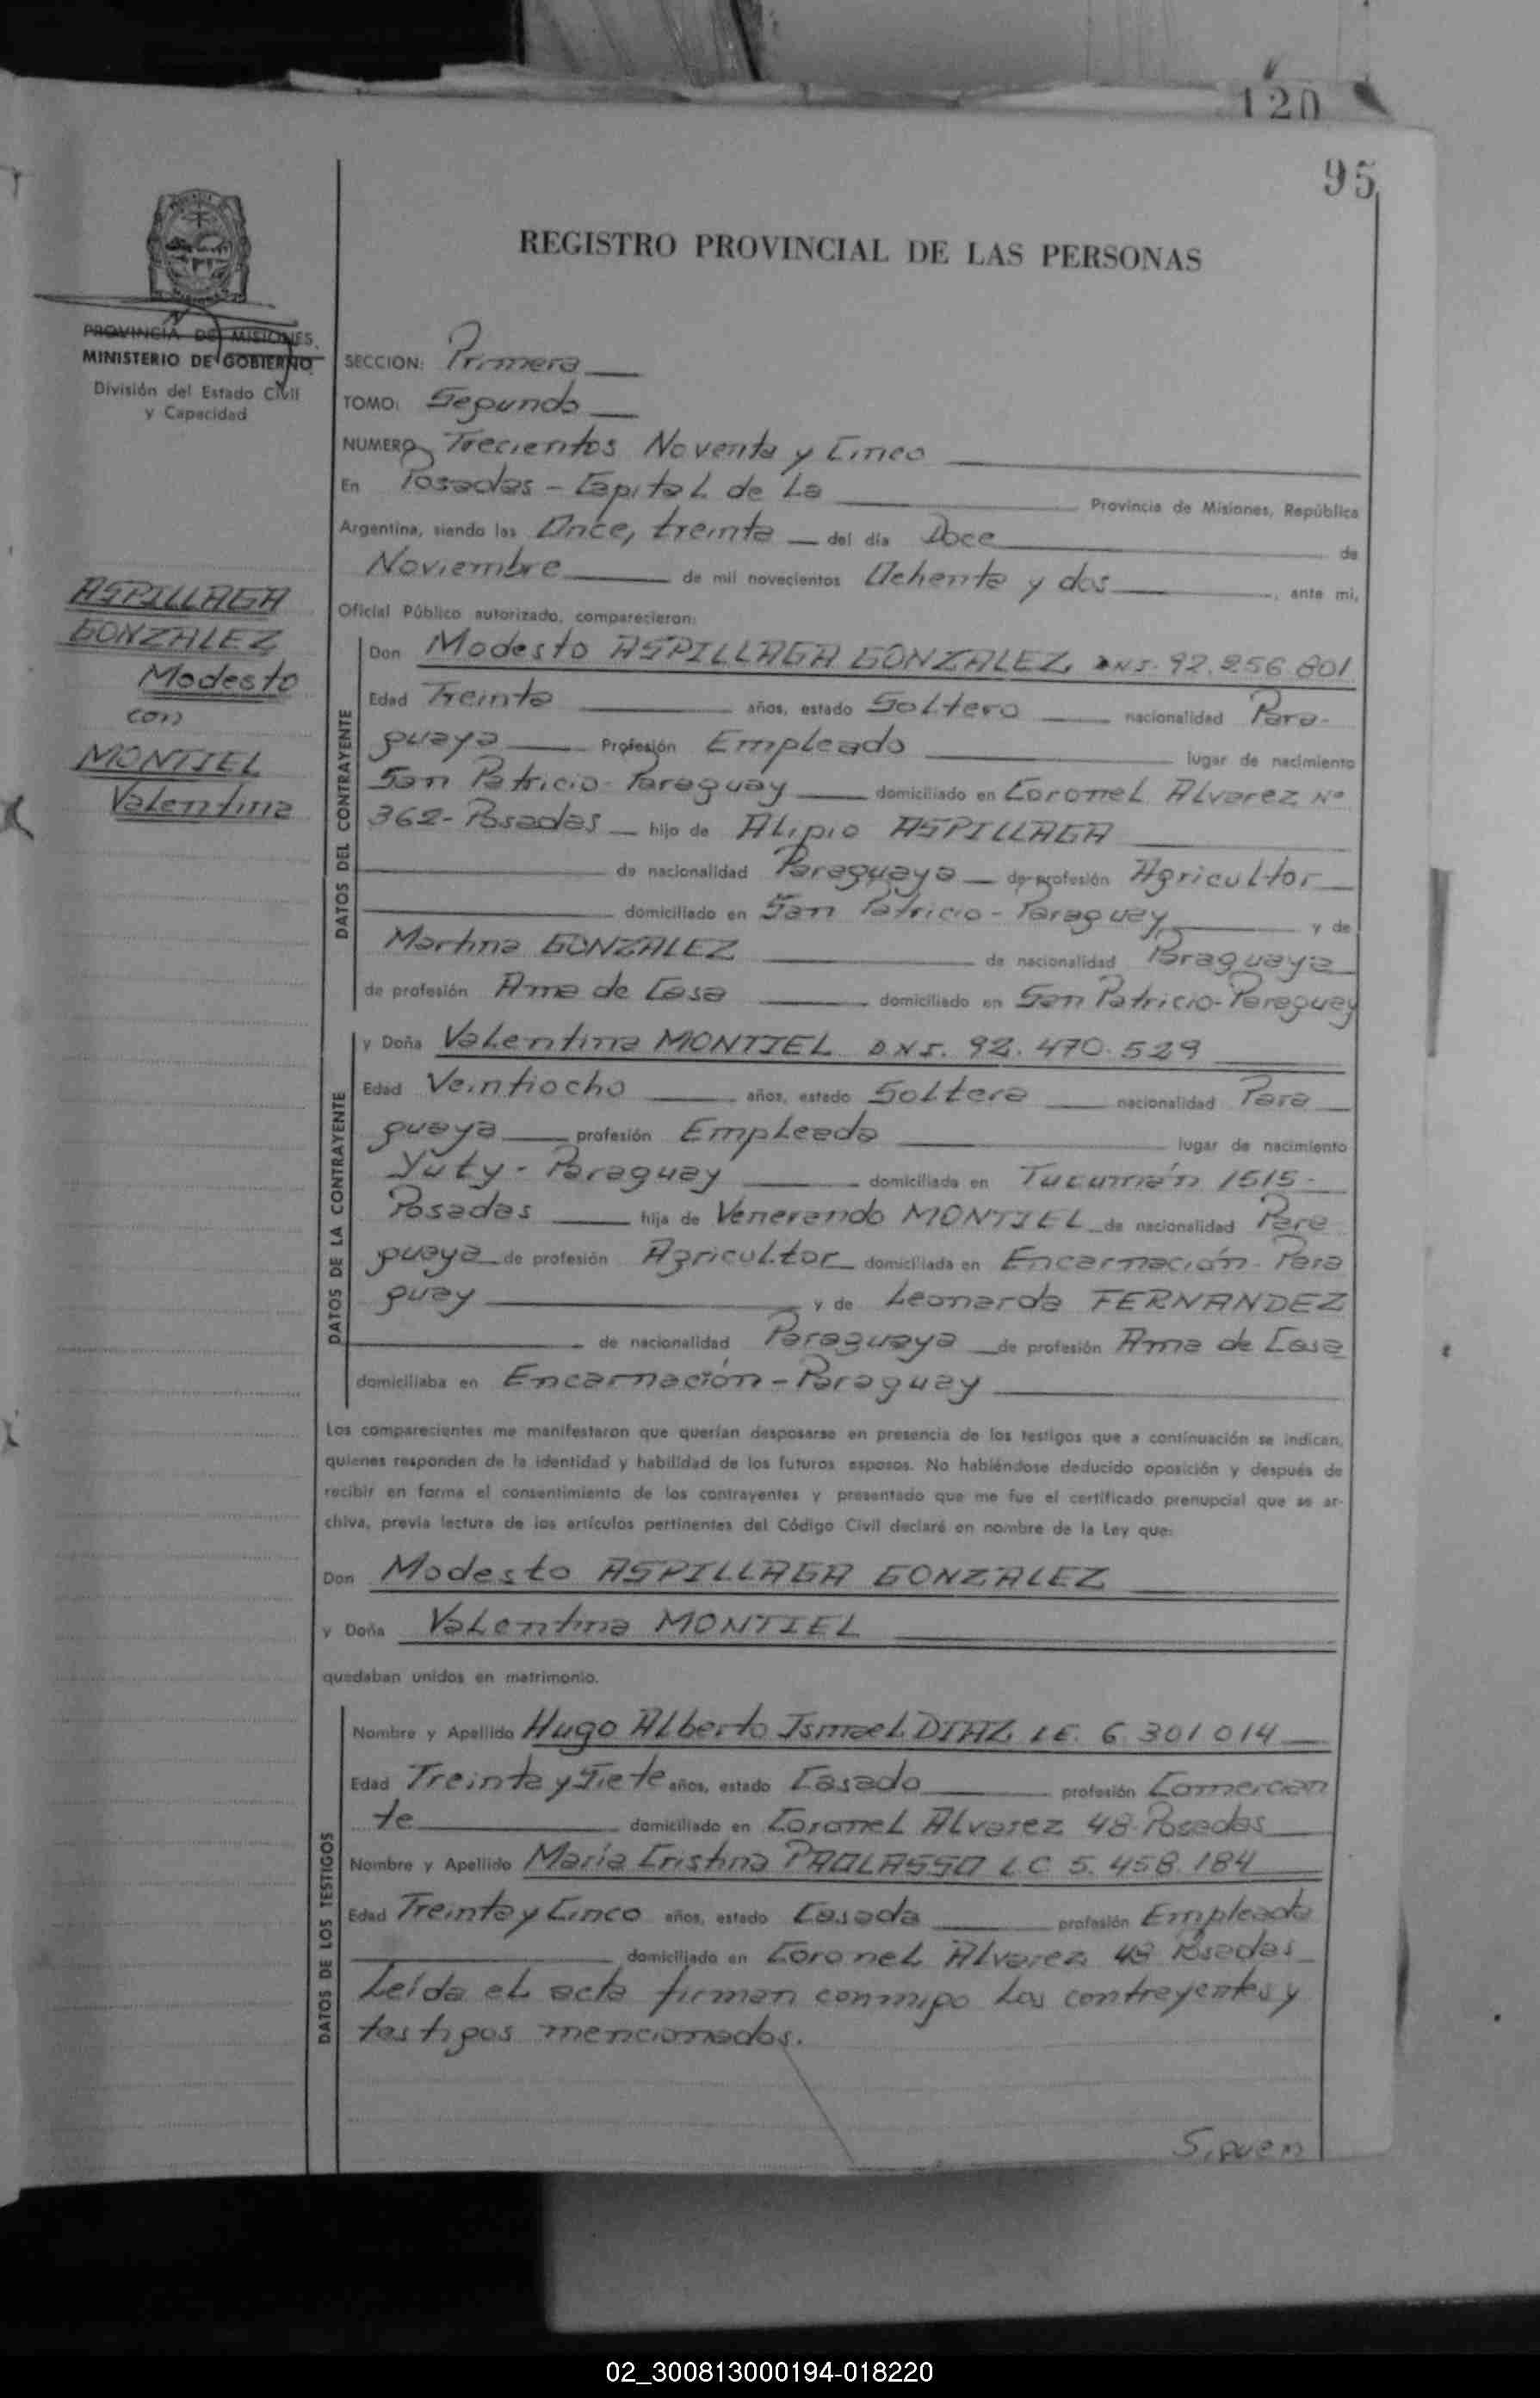 120
95
REGISTRO PROVINCIAL DE LAS PERSONAS
PROVINCIA DE MISIONES
MINISTERIO DE GOBIERNO
División del Estado Civil
y Capacidad
ASPILLAGA
GONZALEZ
Modesto
con
MONTIEL
Valentina
SECCION: Primera
TOMO: Segundo
NUMERO Trecientos Noventa y Cinco
En Posadas - Capital de La Provincia de Misiones, República
Argentina, siendo las Once, treinta del día Doce de
Noviembre de mil novecientos Ochenta y dos, ante mi,
Oficial Público autorizado, comparecieron:
DATOS DEL CONTRAYENTE
Don Modesto ASPILLAGA GONZALEZ, DNI. 92.256.801
Edad Treinta años, estado Soltero nacionalidad Para-
guaya Profesión Empleado lugar de nacimiento
San Patricio - Paraguay domiciliado en Coronel Alvarez Nº
362- Posadas hijo de Alipio ASPILLAGA
de nacionalidad Paraguaya de profesión Agricultor
domiciliado en San Patricio - Paraguay y de
Martina GONZALEZ de nacionalidad Paraguaya
de profesión Ama de Casa domiciliado en San Patricio- Paraguay
DATOS DE LA CONTRAYENTE
y Doña Valentina MONTIEL DNI. 92.470.529
Edad Veintiocho años, estado Soltera nacionalidad Para
guaya profesión Empleada lugar de nacimiento
Yuty - Paraguay domiciliada en Tucumán 1515-
Posadas hija de Venerando MONTIEL de nacionalidad Para
guaya de profesión Agricultor domiciliada en Encarnación - Para
guay y de Leonarda FERNANDEZ
de nacionalidad Paraguaya de profesión Ama de Casa
domiciliaba en Encarnación - Paraguay
Los comparecientes me manifestaron que querían desposarse en presencia de los testigos que a continuación se indican,
quienes responden de la identidad y habilidad de los futuros esposos. No habiéndose deducido oposición y después de
recibir en forma el consentimiento de los contrayentes y presentado que me fue el certificado prenupcial que se ar-
chiva, previa lectura de los artículos pertinentes del Código Civil declaré en nombre de la Ley que:
Don Modesto ASPILLAGA GONZALEZ
y Doña Valentina MONTIEL
quedaban unidos en matrimonio.
DATOS DE LOS TESTIGOS
Nombre y Apellido Hugo Alberto Ismael DIAZ LE. 6 301 014
Edad Treinta y Siete años, estado Casado profesión Comercian
te domiciliado en Coronel Alvarez 48- Posadas
Nombre y Apellido María Cristina PAOLASSO LC 5.458.184
Edad Treinta y Cinco años, estado Casada profesión Empleada
domiciliado en Coronel Alvarez 48 Posadas
Leída el acta firman conmigo los contrayentes y
testigos mencionados.
Siguen
02_300813000194-018220